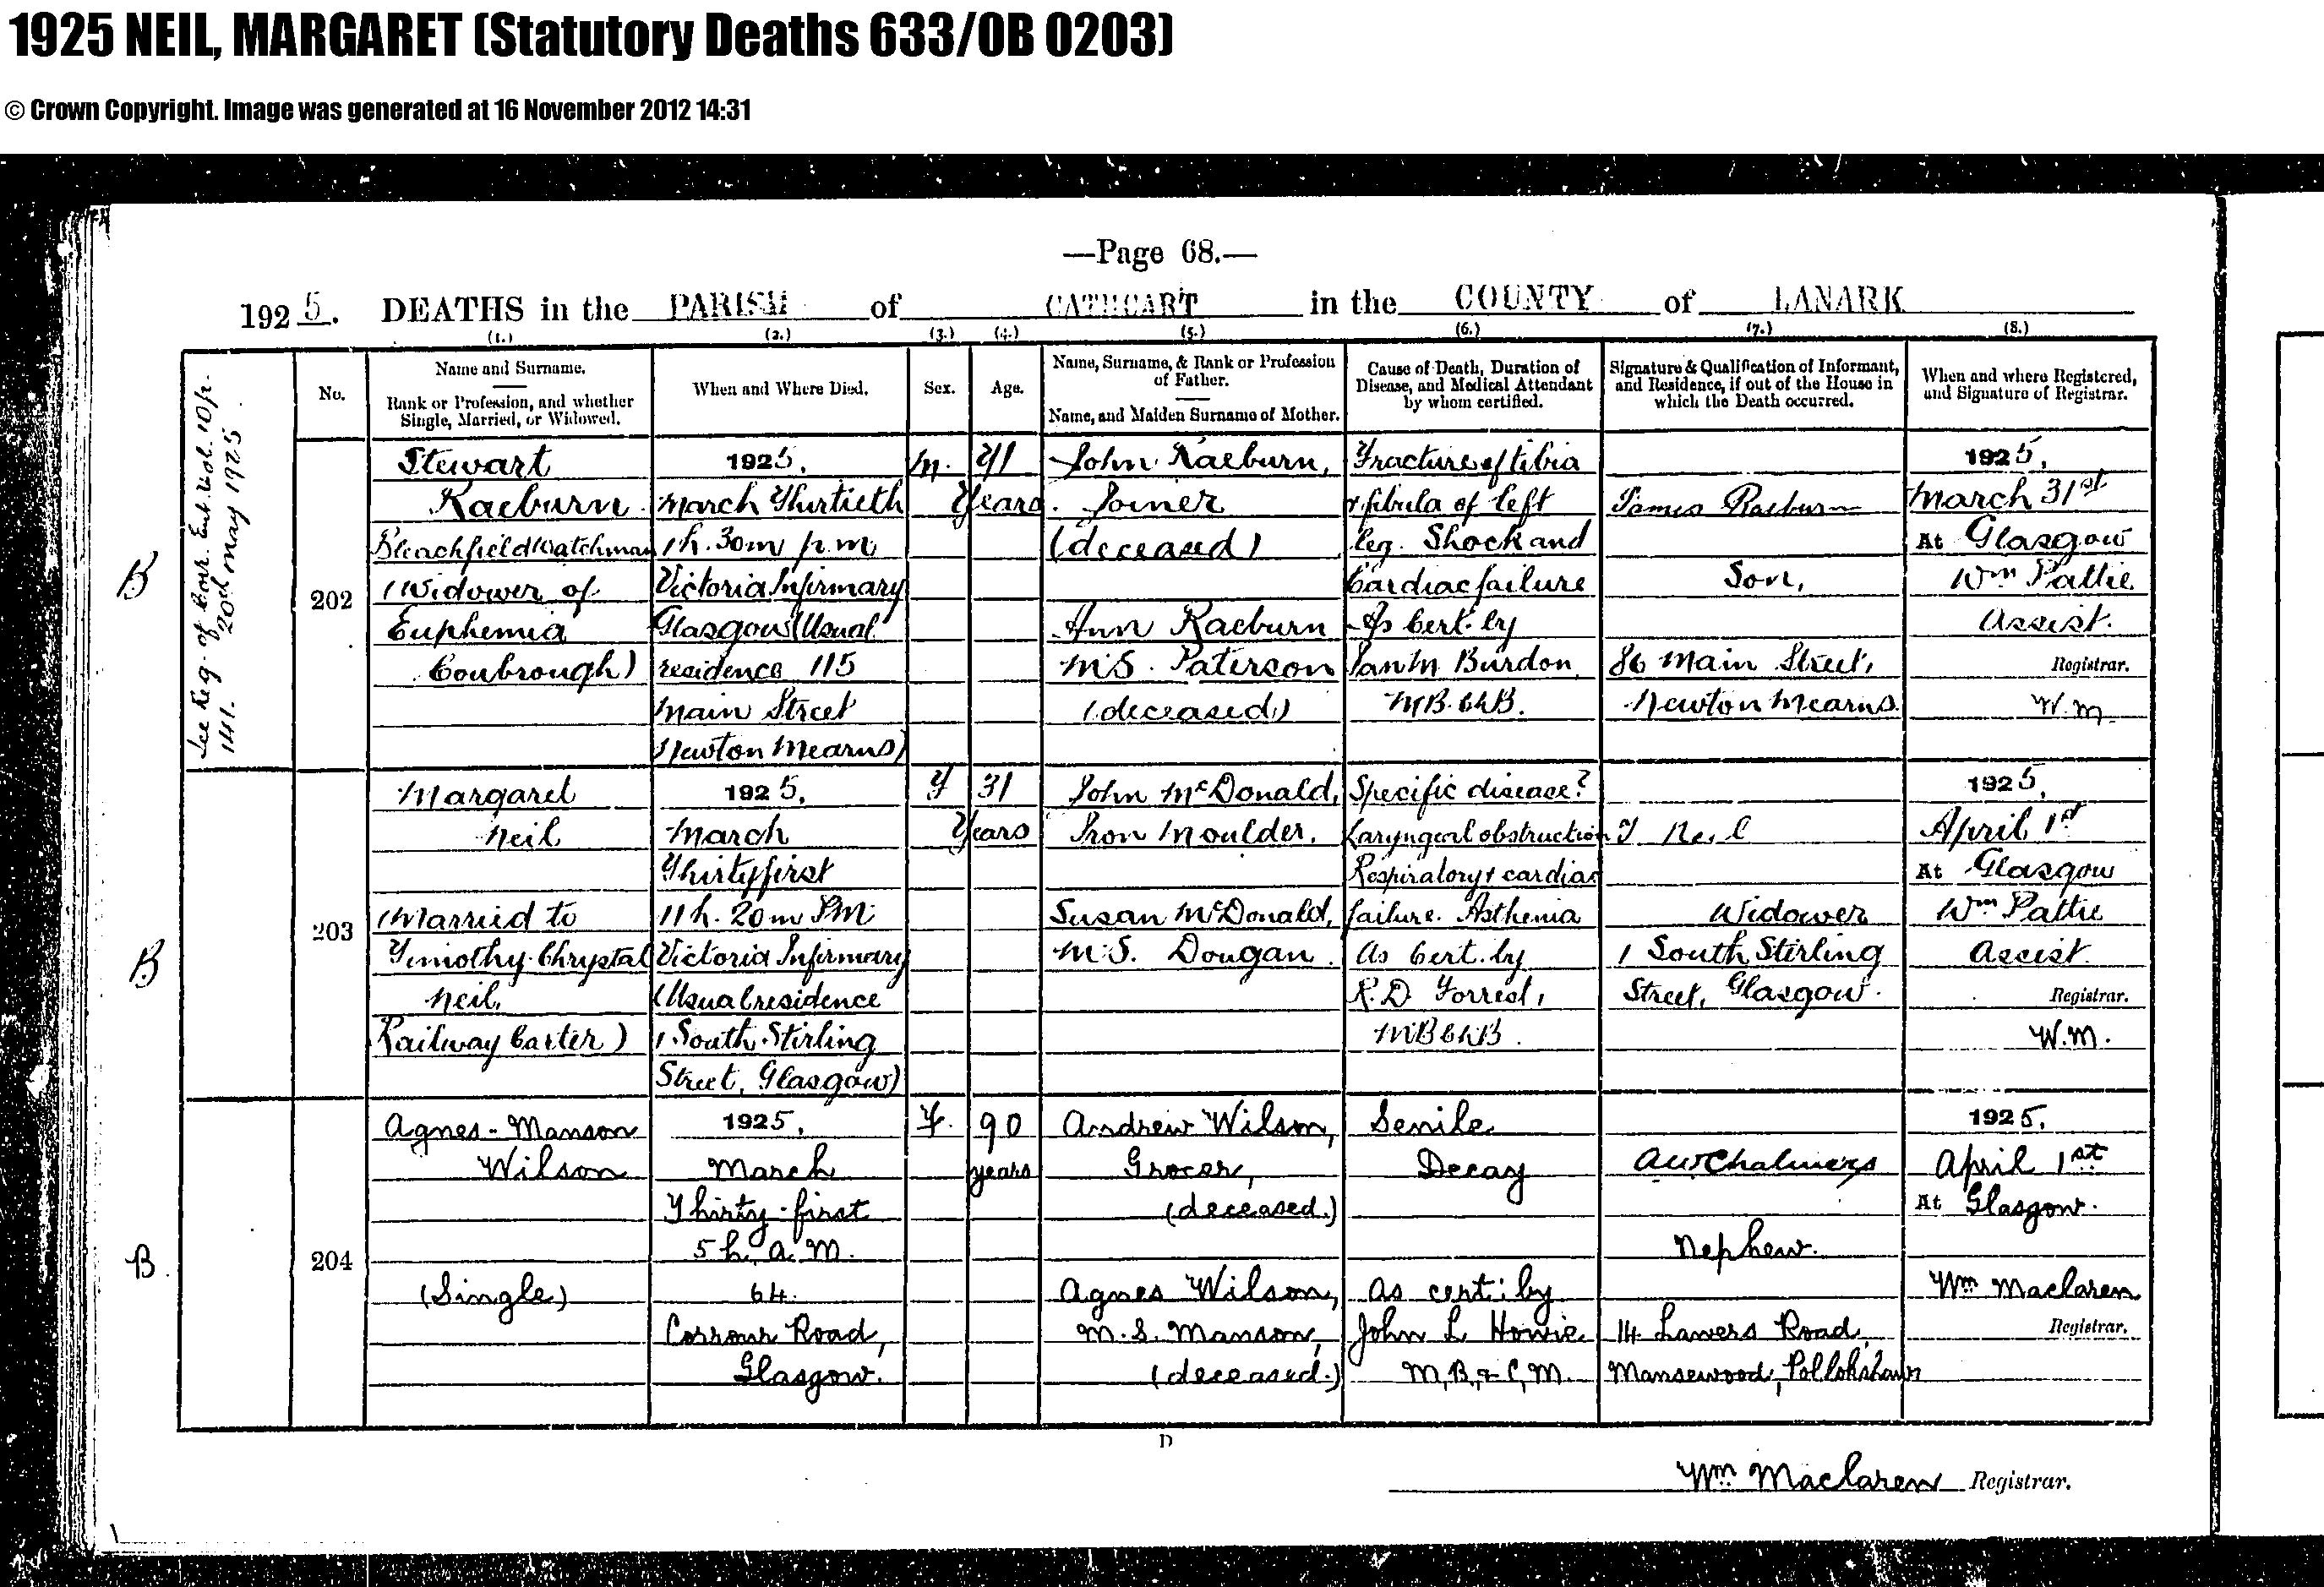 1925 NEIL, MARGARET (Statutory Deaths 633/0B 0203)
© Crown Copyright. Image was generated at 16 November 2012 14:31
—Page 68.—
1925. DEATHS in the PARISH of CATHCART in the COUNTY of LANARK
(1.) (2.) (3.) (4.) (5.) (6.) (7.) (8.)
No.
Name and Surname.
Rank or Profession, and whether
Single, Married, or Widowed.
When and Where Died.
Sex.
Age.
Name, Surname, & Rank or Profession
of Father.
Name, and Maiden Surname of Mother.
Cause of Death, Duration of
Disease, and Medical Attendant
by whom certified.
Signature & Qualification of Informant,
and Residence, if out of the House in
which the Death occurred.
When and where Registered,
and Signature of Registrar.
See Reg. of Corr. Ent. Vol. 10 p.
141. 20th May 1925
B
202
Stewart
Raeburn
Bleachfield Watchman
(Widower of
Euphemia
Coubrough)
1925,
March Thirtieth
1h. 30m p.m
Victoria Infirmary
Glasgow (Usual
residence 115
Main Street
Newton Mearns)
M.
71
Years.
John Raeburn,
Joiner
(deceased)
Ann Raeburn
M.S. Paterson
(deceased)
Fracture of tibia
& fibula of left
leg. Shock and
Cardiac failure
As Cert. by
Ian M Burdon,
MB. ChB.
James Raeburn
Son,
86 Main Street,
Newton Mearns.
1925,
March 31st
At Glasgow
Wm Pattie
Assist.
Registrar.
W.M.
B
203
Margaret
Neil
(Married to
Timothy Chrystal
Neil,
Railway Carter)
1925,
March
Thirtyfirst
11h. 20m PM
Victoria Infirmary
(Usual residence
1 South Stirling
Street, Glasgow)
F
31
Years
John McDonald,
Iron Moulder.
Susan McDonald,
M.S. Dougan.
Specific disease?
Laryngeal obstruction
Respiratory & cardiac
failure. Asthenia
As Cert. by
R.D Forrest,
MB ChB.
T Neil
Widower
1 South Stirling
Street, Glasgow.
1925,
April 1st
At Glasgow
Wm Pattie
Assist.
Registrar.
W.M.
B.
204
Agnes-Manson
Wilson
(Single)
1925,
March
Thirty-first
5 h. a.m.
64
Corrour Road,
Glasgow.
F.
90
years
Andrew Wilson,
Grocer,
(deceased.)
Agnes Wilson,
M.S. Manson,
(deceased.)
Senile
Decay
As cert: by
John L Howie
M,B,& C,M.
AW Chalmers
Nephew.
14 Lawers Road,
Mansewood, Pollokshaws
1925,
April 1st
At Glasgow.
Wm Maclaren
Registrar.
D
Wm Maclaren Registrar.